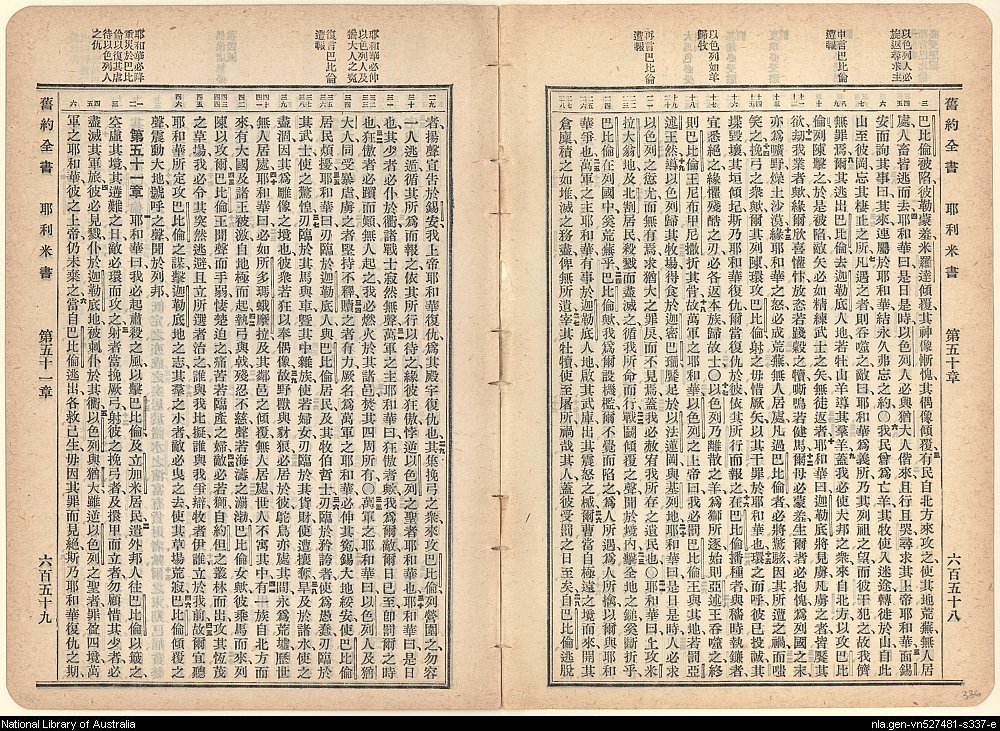 舊約全書　耶利米書　第五十章　六百五十八
以色列人必
旋返尋求主
申言巴比倫
遭報
以色列如羊
歸牧
再言巴比倫
遭報
巴比倫被陷彼勒蒙羞米羅達傾覆其神像慚愧其偶像傾覆有民自北方來攻之使其地荒蕪無人居
處人畜皆逃而去耶和華曰是日是時以色列人必與猶大人偕來且行且哭尋求其上帝耶和華面錫
安而詢其事曰其來連屬於耶和華結永久弗忘之約○我民曾為亡羊其牧使入迷途轉徙於山自此
山至彼岡忘其棲止之所凡遇之者則吞噬之敵曰耶和華為義所乃其列祖之望而彼干犯之故我儕
無罪焉爾其逃出巴比倫去迦勒底人地若牡山羊導其羣羊蓋我必使大邦之衆來自北方以攻巴比
倫列陳擊之於是被陷敵矢必如精練武士之矢無徒返者耶和華曰迦勒底將見虜凡虜之者皆饜其
欲劫我業者歟緣爾欣喜懽忭放恣若踐穀之犢嘶鳴若健馬爾母必蒙羞生爾者必抱愧為列國之末
亦為曠野燥土沙漠緣耶和華之怒必成荒蕪無人居處凡過巴比倫者必將駭異因其所遭之禍而嗤
笑之挽弓之衆歟其列陳環攻巴比倫射之毋惜厥矢以其干罪於耶和華也環之而呼彼已投誠其
堞毀壞其垣傾圮斯乃耶和華復仇爾當復仇於彼依其所行而報之在巴比倫播種者與穡時執鐮者
宜悉絕之緣懼殘酷之刃必各返本族歸故土○以色列乃離散之羊為獅所逐始則亞述王吞噬之終
則巴比倫王尼布甲尼撒折其骨故萬軍之耶和華以色列之上帝曰我必罰巴比倫王與其地若罰亞
述王然導以色列歸其牧場得食於迦密巴珊饜足於以法蓮岡與基列地耶和華曰是日是時人必求
以色列之愆尤而無有焉求猶大之罪戾而不見焉蓋我必赦宥我所存之遺民也○耶和華曰上攻米
拉大翁地及比割居民殺戮而盡滅之循我所命而行戰鬬傾覆之聲開於境內擊全地之鎚奚斷折乎
巴比倫在列國中奚荒蕪乎巴比倫歟我為爾設機檻爾不覺而陷之為人所遇為人所獲以爾與耶和
華爭也萬軍之主耶和華有事於迦勒底人地啟其武庫出其震怒之械爾曹當自極遠之境而來開其
倉廩積之如堆滅之務盡俾無所遺宰其牡犢使至屠所禍哉其人蓋彼受罰之日至矣自巴比倫逃脫
舊約全書　耶利米書　第五十一章　六百五十九
耶和華必伸
以色列人及
猶大人之寃
復言巴比倫
遭報
耶和華必降
重災於巴比
倫以復其虐
待以色列人
之仇
者揚聲宣告於錫安我上帝耶和華復仇為其殿宇復仇也其集挽弓之衆來攻巴比倫列營圍之勿容
一人逃逝循其所為而報之依其所行以待之緣彼狂傲悖逆以色列之聖者耶和華也耶和華曰是日
也其少者必仆於衢諸戰士寂然無聲萬軍之主耶和華曰狂傲者歟我為爾敵爾日已至卽罰爾之時
也狂傲者必躓而顛無人起之我必燃火於其諸邑焚其四周所有○萬軍之耶和華曰以色列人及猶
大人同受暴虐虜之者堅持不釋贖之者有力厥名為萬軍之耶和華必伸其寃錫大地綏安使巴比倫
居民煩擾耶和華曰刃臨於迦勒底人與巴比倫居民及其牧伯哲士刃臨於矜誇者使為愚蠢刃臨於
其武士使之驚惶刃臨於其馬與車曁其中雜族使若婦女刃臨於其貨財使遭攘奪旱及於諸水使之
盡涸因其為雕像之境也彼衆若狂以奉偶像故野獸與豺狼必居於彼鴕鳥亦處其間永為荒墟歷世
無人居處耶和華曰必如所多瑪蛾摩拉及其鄰邑之傾覆無人居處世人不寓其中有一族自北方而
來有大國及諸王被激自地極而起執弓與戟殘忍不慈聲若海濤之漰渤巴比倫女歟彼乘馬而來列
陳以攻爾巴比倫王聞聲而手弱悽楚迫之痛苦若臨產之婦敵必若獅自約但之叢林而出攻其恆茂
之草場我必令其突然逃避且立所選者治之誰與我比擬誰與我爭辯牧者伊誰立於我前故爾宜聽
耶和華所定攻巴比倫之謀擊迦勒底地之志其羣之小者敵必曳之去使其草場荒寂巴比倫傾覆之
聲震動大地號呼之聲開於列邦
第五十一章　耶和華曰我必肅殺之風以擊巴比倫及立加米居民遣外邦人往巴比倫以簸之
空虛其境其遘難之日敵必環而攻之射者當挽厥弓射彼之挽弓者及擐甲而立者勿顧惜其少者必
盡滅其軍旅彼必見戮仆於迦勒底地被刺仆於其衢以色列與猶大雖逆以色列之聖者罪盈四境萬
軍之耶和華彼之上帝仍未棄之當自巴比倫逃出各救己生毋因其罪而見絕斯乃耶和華復仇之期
336
National Library of Australia
nla.gen-vn527481-s337-e